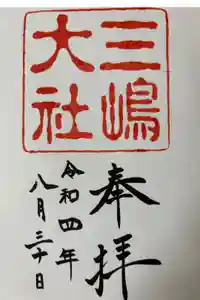 三嶋
大社
奉拝
令和四年
八月三十日